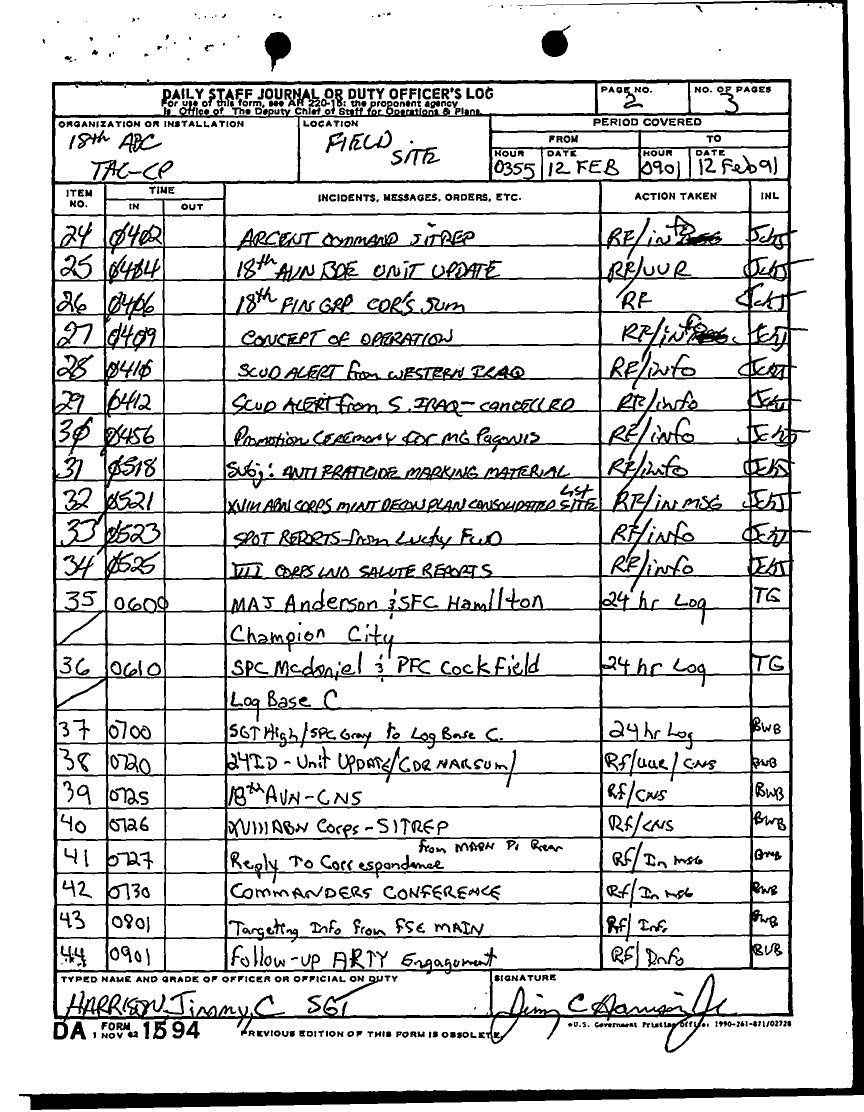 DAILY STAFF JOURNAL OR DUTY OFFICER'S LOG
For use of this form, see AR 220-15: the proponent agency
is Office of The Deputy Chief of Staff for Operations & Plans.
PAGE NO.
2
NO. OF PAGES
3
ORGANIZATION OR INSTALLATION
18th ABC
TAC-CP
LOCATION
FIELD
SITE
PERIOD COVERED
FROM TO
HOUR DATE HOUR DATE
0355 12 FEB 0901 12 Feb 91
ITEM NO. TIME INCIDENTS, MESSAGES, ORDERS, ETC. ACTION TAKEN INL
IN OUT
24 0402 ARCENT COMMAND SITREP RF/in
25 0404 18th AVN BDE UNIT UPDATE RF/UUR
26 0406 18th FIN GRP CDR'S SUM RF
27 0409 CONCEPT OF OPERATION RF/in
28 0410 SCUD ALERT from WESTERN IRAQ RF/info
29 0412 SCUD ALERT from S. IRAQ - cancelled RF/info
30 0456 Promotion Ceremony for MG Pagonis RF/info
31 0518 Subj: ANTI FRATICIDE MARKING MATERIAL RF/info
32 0521 XVIII ABN CORPS MINT DECON PLAN CONSOLIDATED SITE List RF/in MSG
33 0523 SPOT REPORTS from Lucky FWD RF/info
34 0525 VII CORPS LNO SALUTE REPORTS RF/info
35 0600 MAJ Anderson & SFC Hamilton 24 hr Log TG
Champion City
36 0610 SPC Mcdaniel & PFC Cockfield 24 hr Log TG
Log Base C
37 0700 SGT High/SPC Gray to Log Base C. 24 hr Log BWB
38 0720 24ID - Unit UPDATE/CDR NARSUM/ Rf/UUR/CNS BWB
39 0725 18th AVN-CNS Rf/CNS BWB
40 0726 XVIII ABN Corps - SITREP Rf/CNS BWB
from Rear
41 0727 Reply To Correspondence Rf/In msg BWB
42 0730 COMMANDERS CONFERENCE Rf/In msg BWB
43 0801 Targeting Info from FSE MAIN Rf/Info BWB
44 0901 Follow-up ARTY Engagement Rf/Info BWB
TYPED NAME AND GRADE OF OFFICER OR OFFICIAL ON DUTY
HARRISON, Jimmy C SGT
SIGNATURE
Jimmy C Harrison Jr
DA FORM 1594
1 NOV 62
PREVIOUS EDITION OF THIS FORM IS OBSOLETE.
*U.S. Government Printing Office: 1990-261-871/02728